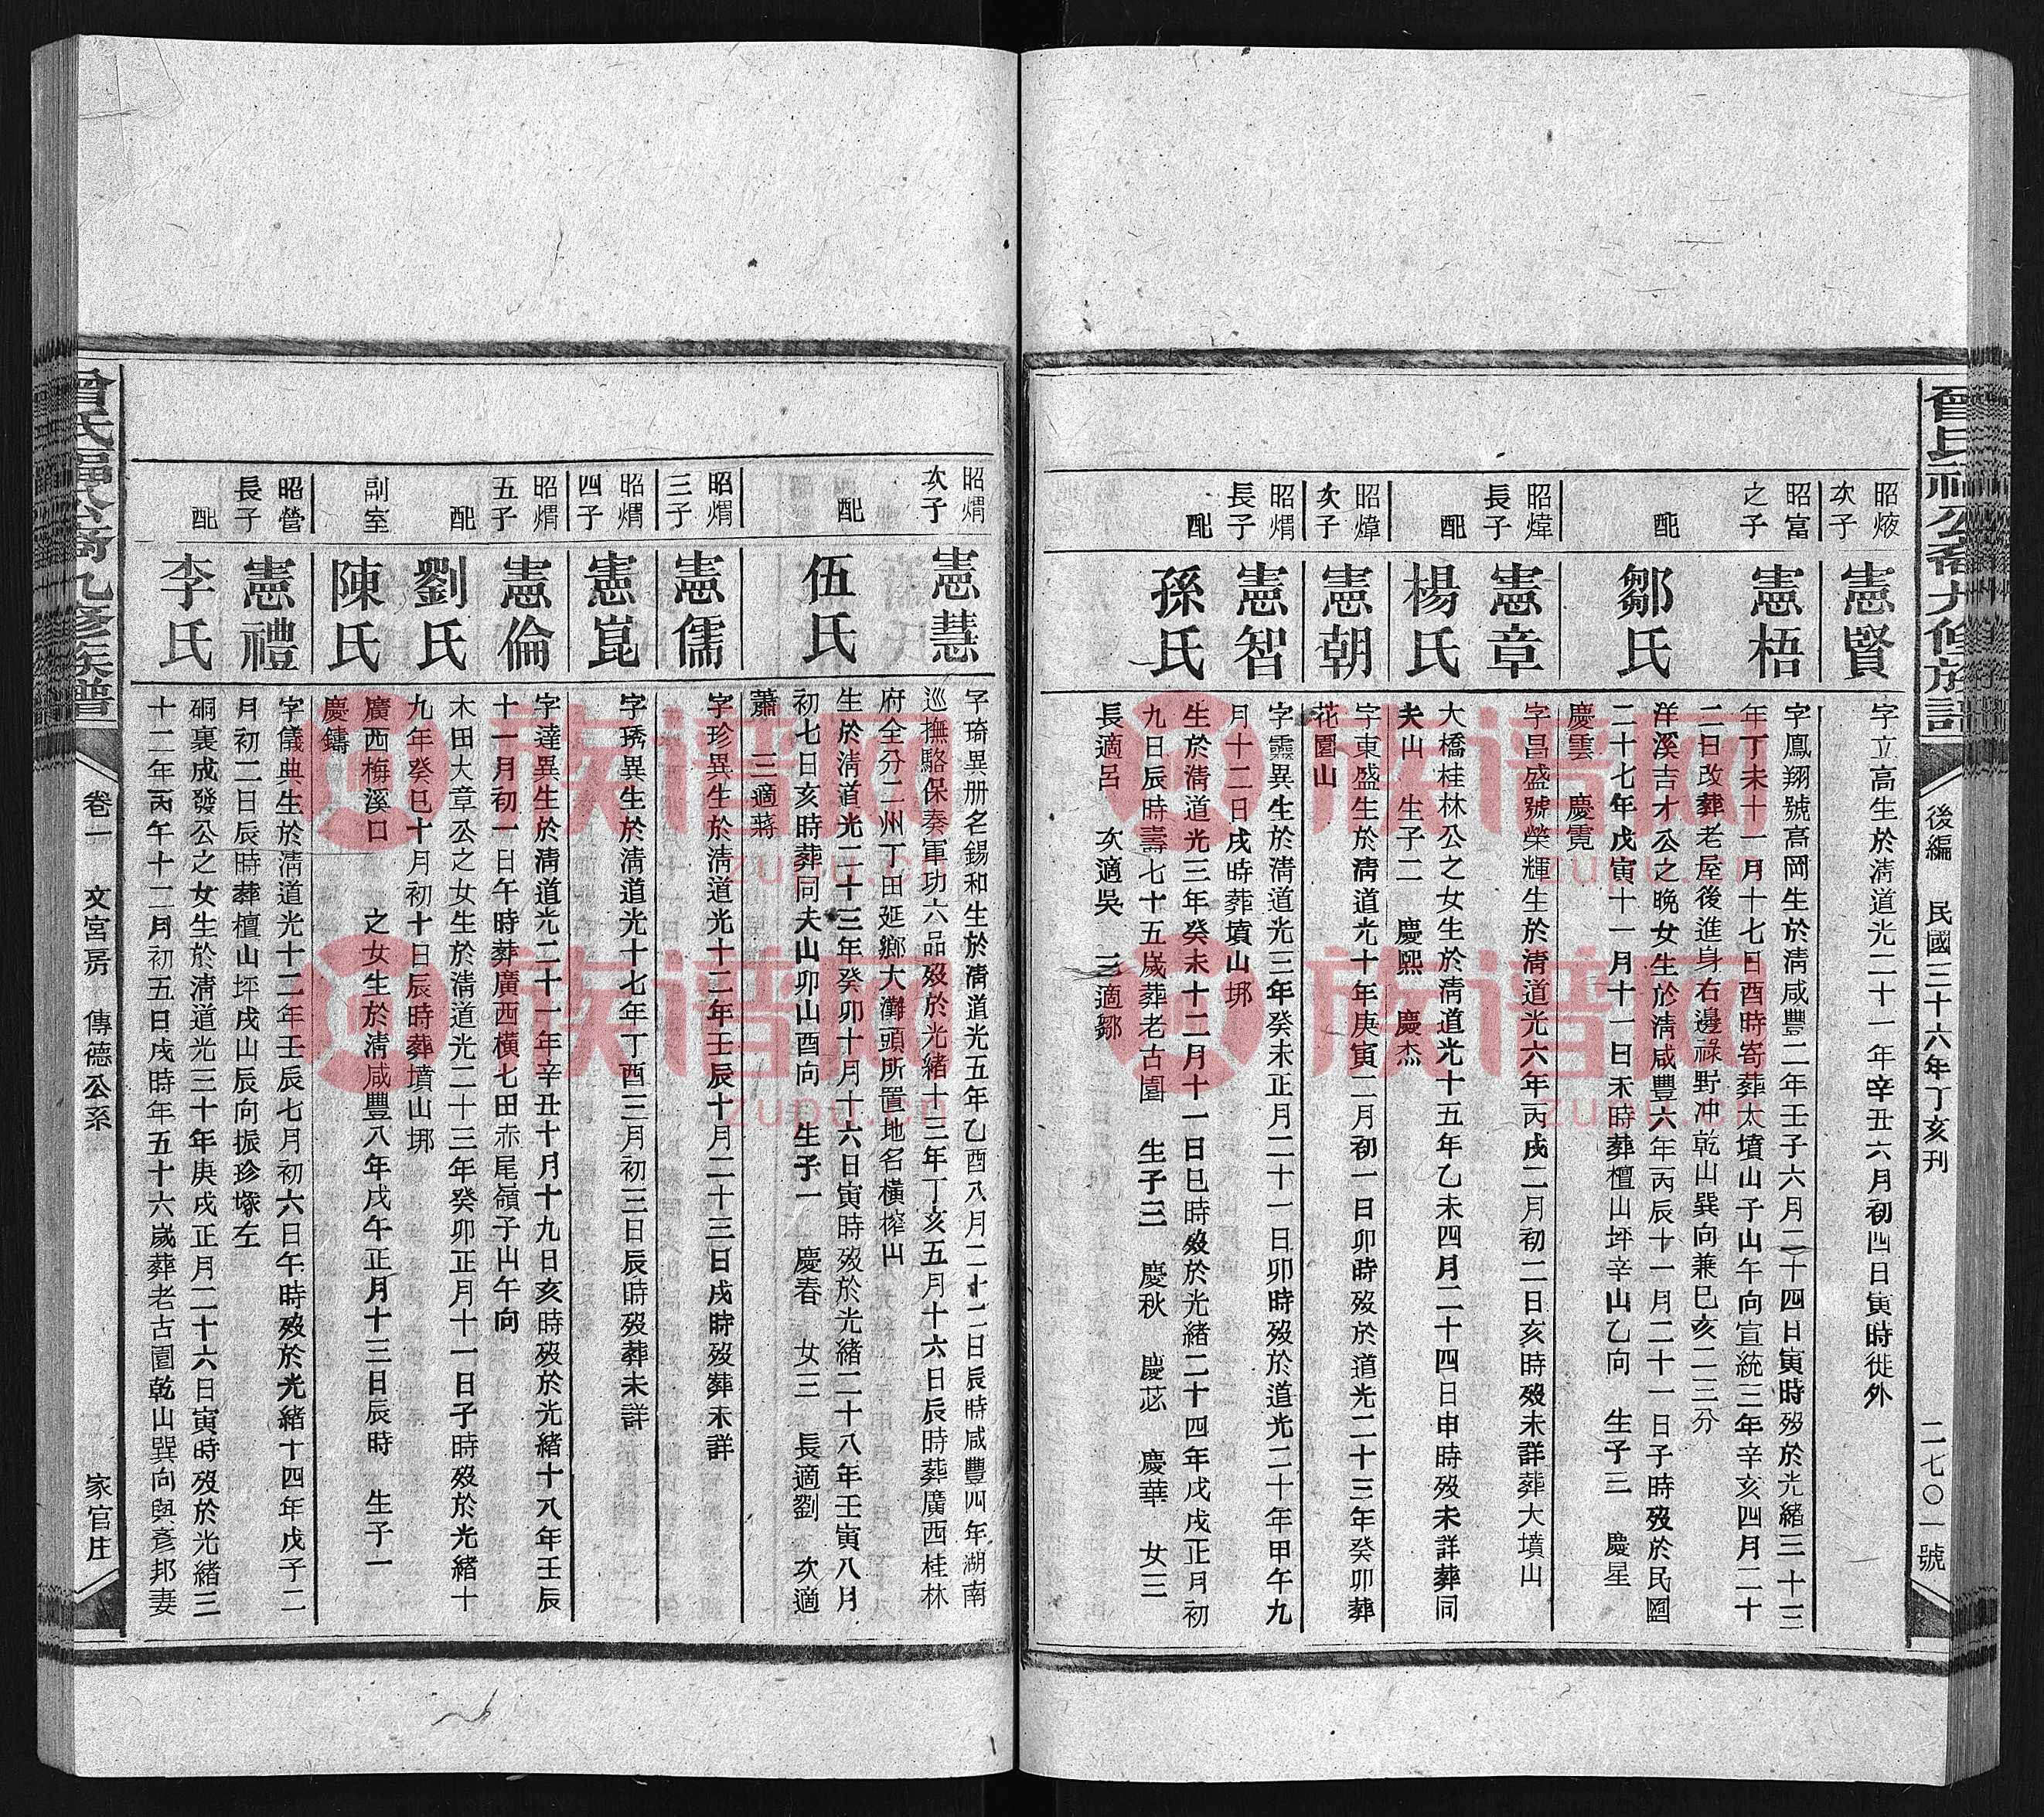 曾氏福公裔九修族譜
後編　民國三十六年丁亥刊
二七〇一號
昭㷡次子
憲賢
字立高生於清道光二十一年辛丑六月初四日寅時徙外
昭富之子
憲梧
字鳳翔號高岡生於清咸豐二年壬子六月二十四日寅時歿於光緒三十三
年丁未十一月十七日酉時寄葬太墳山子山午向宣統三年辛亥四月二十
二日改葬老屋後進身右邊祿野冲乾山巽向兼巳亥二三分
配
鄒氏
洋溪吉才公之晚女生於清咸豐六年丙辰十一月二十一日子時歿於民國
二十七年戊寅十一月十一日未時葬檀山坪辛山乙向　生子三　慶星
慶雲　慶霓
昭煒長子
憲章
字昌盛號榮輝生於清道光六年丙戌二月初二日亥時歿未詳葬大墳山
配
楊氏
大橋桂林公之女生於清道光十五年乙未四月二十四日申時歿未詳葬同
夫山　生子二　慶熙　慶杰
昭煒次子
憲朝
字東盛生於清道光十年庚寅二月初一日卯時歿於道光二十三年癸卯葬
花園山
昭焨長子
憲智
字靈異生於清道光三年癸未正月二十一日卯時歿於道光二十年甲午九
月十二日戌時葬墳山㘭
配
孫氏
生於清道光三年癸未十二月十一日巳時歿於光緒二十四年戊戌正月初
九日辰時壽七十五歲葬老古園　生子三　慶秋　慶苾　慶華　女三
長適呂　次適吳　三適鄒
昭焨次子
憲慧
字琦異册名錫和生於清道光五年乙酉八月二十二日辰時咸豐四年湖南
巡撫駱保奏軍功六品歿於光緒十三年丁亥五月十六日辰時葬廣西桂林
府全分二州丁田延鄉大灘頭所置地名橫榨山
配
伍氏
生於清道光二十三年癸卯十月十六日寅時歿於光緒二十八年壬寅八月
初七日亥時葬同夫山卯山酉向　生子一　慶春　女三　長適劉　次適
蕭　三適蔣
昭焨三子
憲儒
字珍異生於清道光十二年壬辰十月二十三日戌時歿葬未詳
昭焨四子
憲崑
字琇異生於清道光十七年丁酉三月初三日辰時歿葬未詳
昭焨五子
憲倫
字達異生於清道光二十一年辛丑十月十九日亥時歿於光緒十八年壬辰
十一月初一日午時葬廣西橫七田赤尾嶺子山午向
配
劉氏
木田大章公之女生於清道光二十三年癸卯正月十一日子時歿於光緒十
九年癸巳十月初十日辰時葬墳山㘭
副室
陳氏
廣西梅溪口　之女生於清咸豐八年戊午正月十三日辰時　生子一
慶鑄
昭營長子
憲禮
字儀典生於清道光十二年壬辰七月初六日午時歿於光緒十四年戊子二
月初二日辰時葬檀山坪戌山辰向振珍塚左
配
李氏
硐裏成發公之女生於清道光三十年庚戌正月二十六日寅時歿於光緒三
十二年丙午十二月初五日戌時年五十六歲葬老古園乾山巽向與彥邦妻
曾氏福公裔九修族譜
卷一　文宮房　傳德公系
家官庄
族谱网
zupu.cn
族谱网
zupu.cn
族谱网
zupu.cn
族谱网
zupu.cn